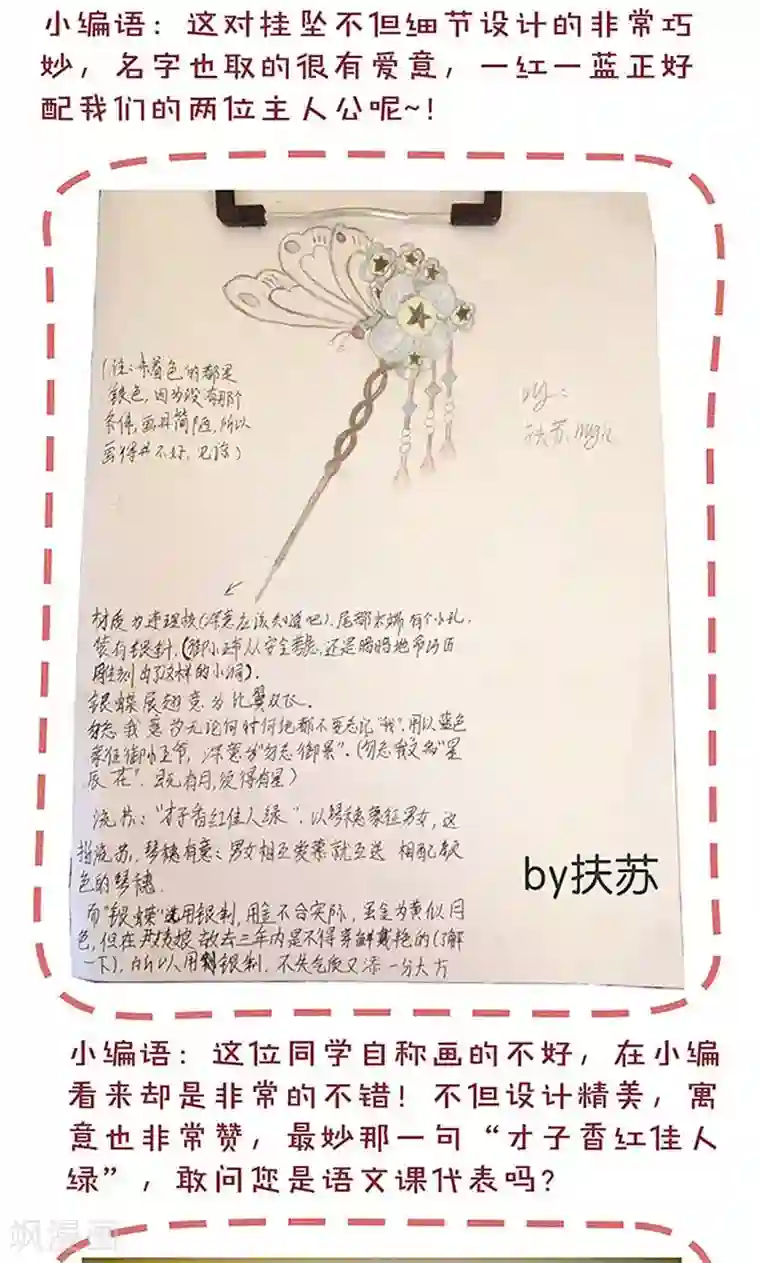 小编语：这对挂坠不但细节设计的非常巧
妙，名字也取的很有爱意，一红一蓝正好
配我们的两位主人公呢~！
(注:未着色的都是
银色,因为没有那个
条件,画具简陋,所以
画得并不好,见谅)
by:
扶苏.
材质为连理枝(深意应该知道吧).尾部末端有个小孔.
装有银针.(御小王爷从安全考虑,还是
雕刻出了这样的小洞).
银蝶展翅意为比翼双飞.
勿忘我意为无论何时何地都不要忘记"我".用以蓝色
象征御小王爷,深意为"勿忘御景".(勿忘我又名"星
辰花".既有月,彼得有星)
流苏:"才子香红佳人绿".以琴穗象征男女,这
指流苏.琴穗有意:男女相互爱慕就互送相配颜
色的琴穗.
而"银蝶"选用银制,用金不合实际,虽金为黄似月
色,但在故去三年内是不得穿鲜戴艳的(了解
一下).所以人用银制.不失气质又添一分大方
by扶苏
小编语：这位同学自称画的不好，在小编
看来却是非常的不错！不但设计精美，寓
意也非常赞，最妙那一句“才子香红佳人
绿”，敢问您是语文课代表吗？
飒漫画